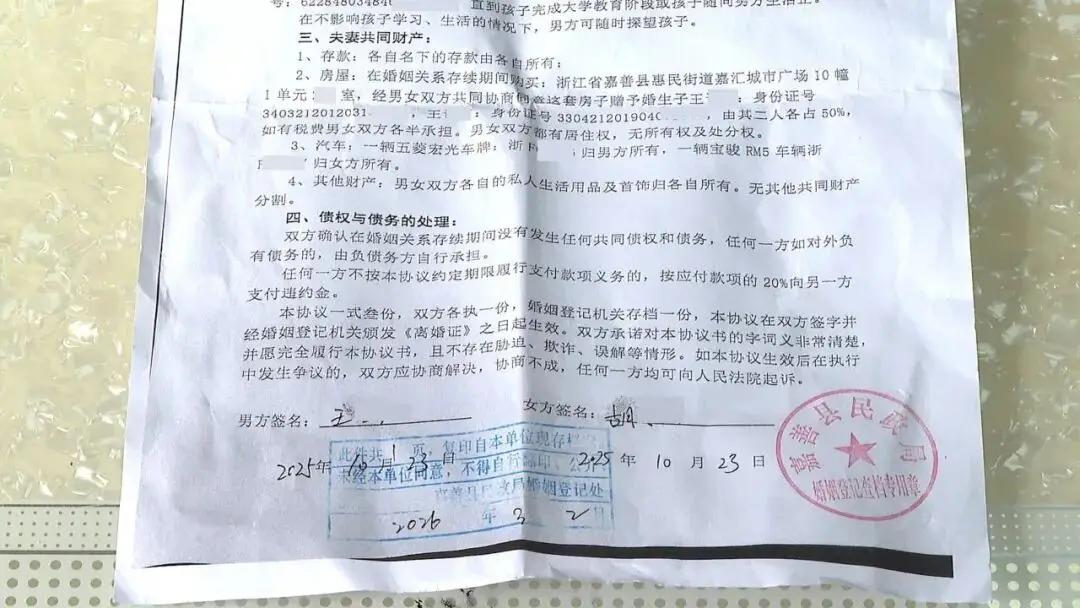 号：62284803484 直到孩子完成大学教育阶段或孩子随同男方生活止。
在不影响孩子学习、生活的情况下，男方可随时探望孩子。
三、夫妻共同财产：
1、存款：各自名下的存款由各自所有：
2、房屋：在婚姻关系存续期间购买：浙江省嘉善县惠民街道嘉汇城市广场10幢
1单元 室，经男女双方共同协商同意这套房子赠予婚生子王 ：身份证号
3403212012031 ，王 ：身份证号 3304212019040 ，由其二人各占50%，
如有税费男女双方各半承担。男女双方都有居住权，无所有权及处分权。
3、汽车：一辆五菱宏光车牌：浙F 归男方所有，一辆宝骏RM5车辆浙
归女方所有。
4、其他财产：男女双方各自的私人生活用品及首饰归各自所有。无其他共同财产
分割。
四、债权与债务的处理：
双方确认在婚姻关系存续期间没有发生任何共同债权和债务，任何一方如对外负
有债务的，由负债务方自行承担。
任何一方不按本协议约定期限履行支付款项义务的，按应付款项的20%向另一方
支付违约金。
本协议一式叁份，双方各执一份，婚姻登记机关存档一份，本协议在双方签字并
经婚姻登记机关颁发《离婚证》之日起生效。双方承诺对本协议书的字词义非常清楚，
并愿完全履行本协议书，且不存在胁迫、欺诈、误解等情形。如本协议生效后在执行
中发生争议的，双方应协商解决，协商不成，任何一方均可向人民法院起诉。
男方签名：王 女方签名：胡
2025年10月23日 2025年10月23日
此件共1页，复印自本单位现存
未经本单位同意，不得自行翻印、公
嘉善县民政局婚姻登记处
2026年3月2日
嘉善县民政局
婚姻登记查档专用章